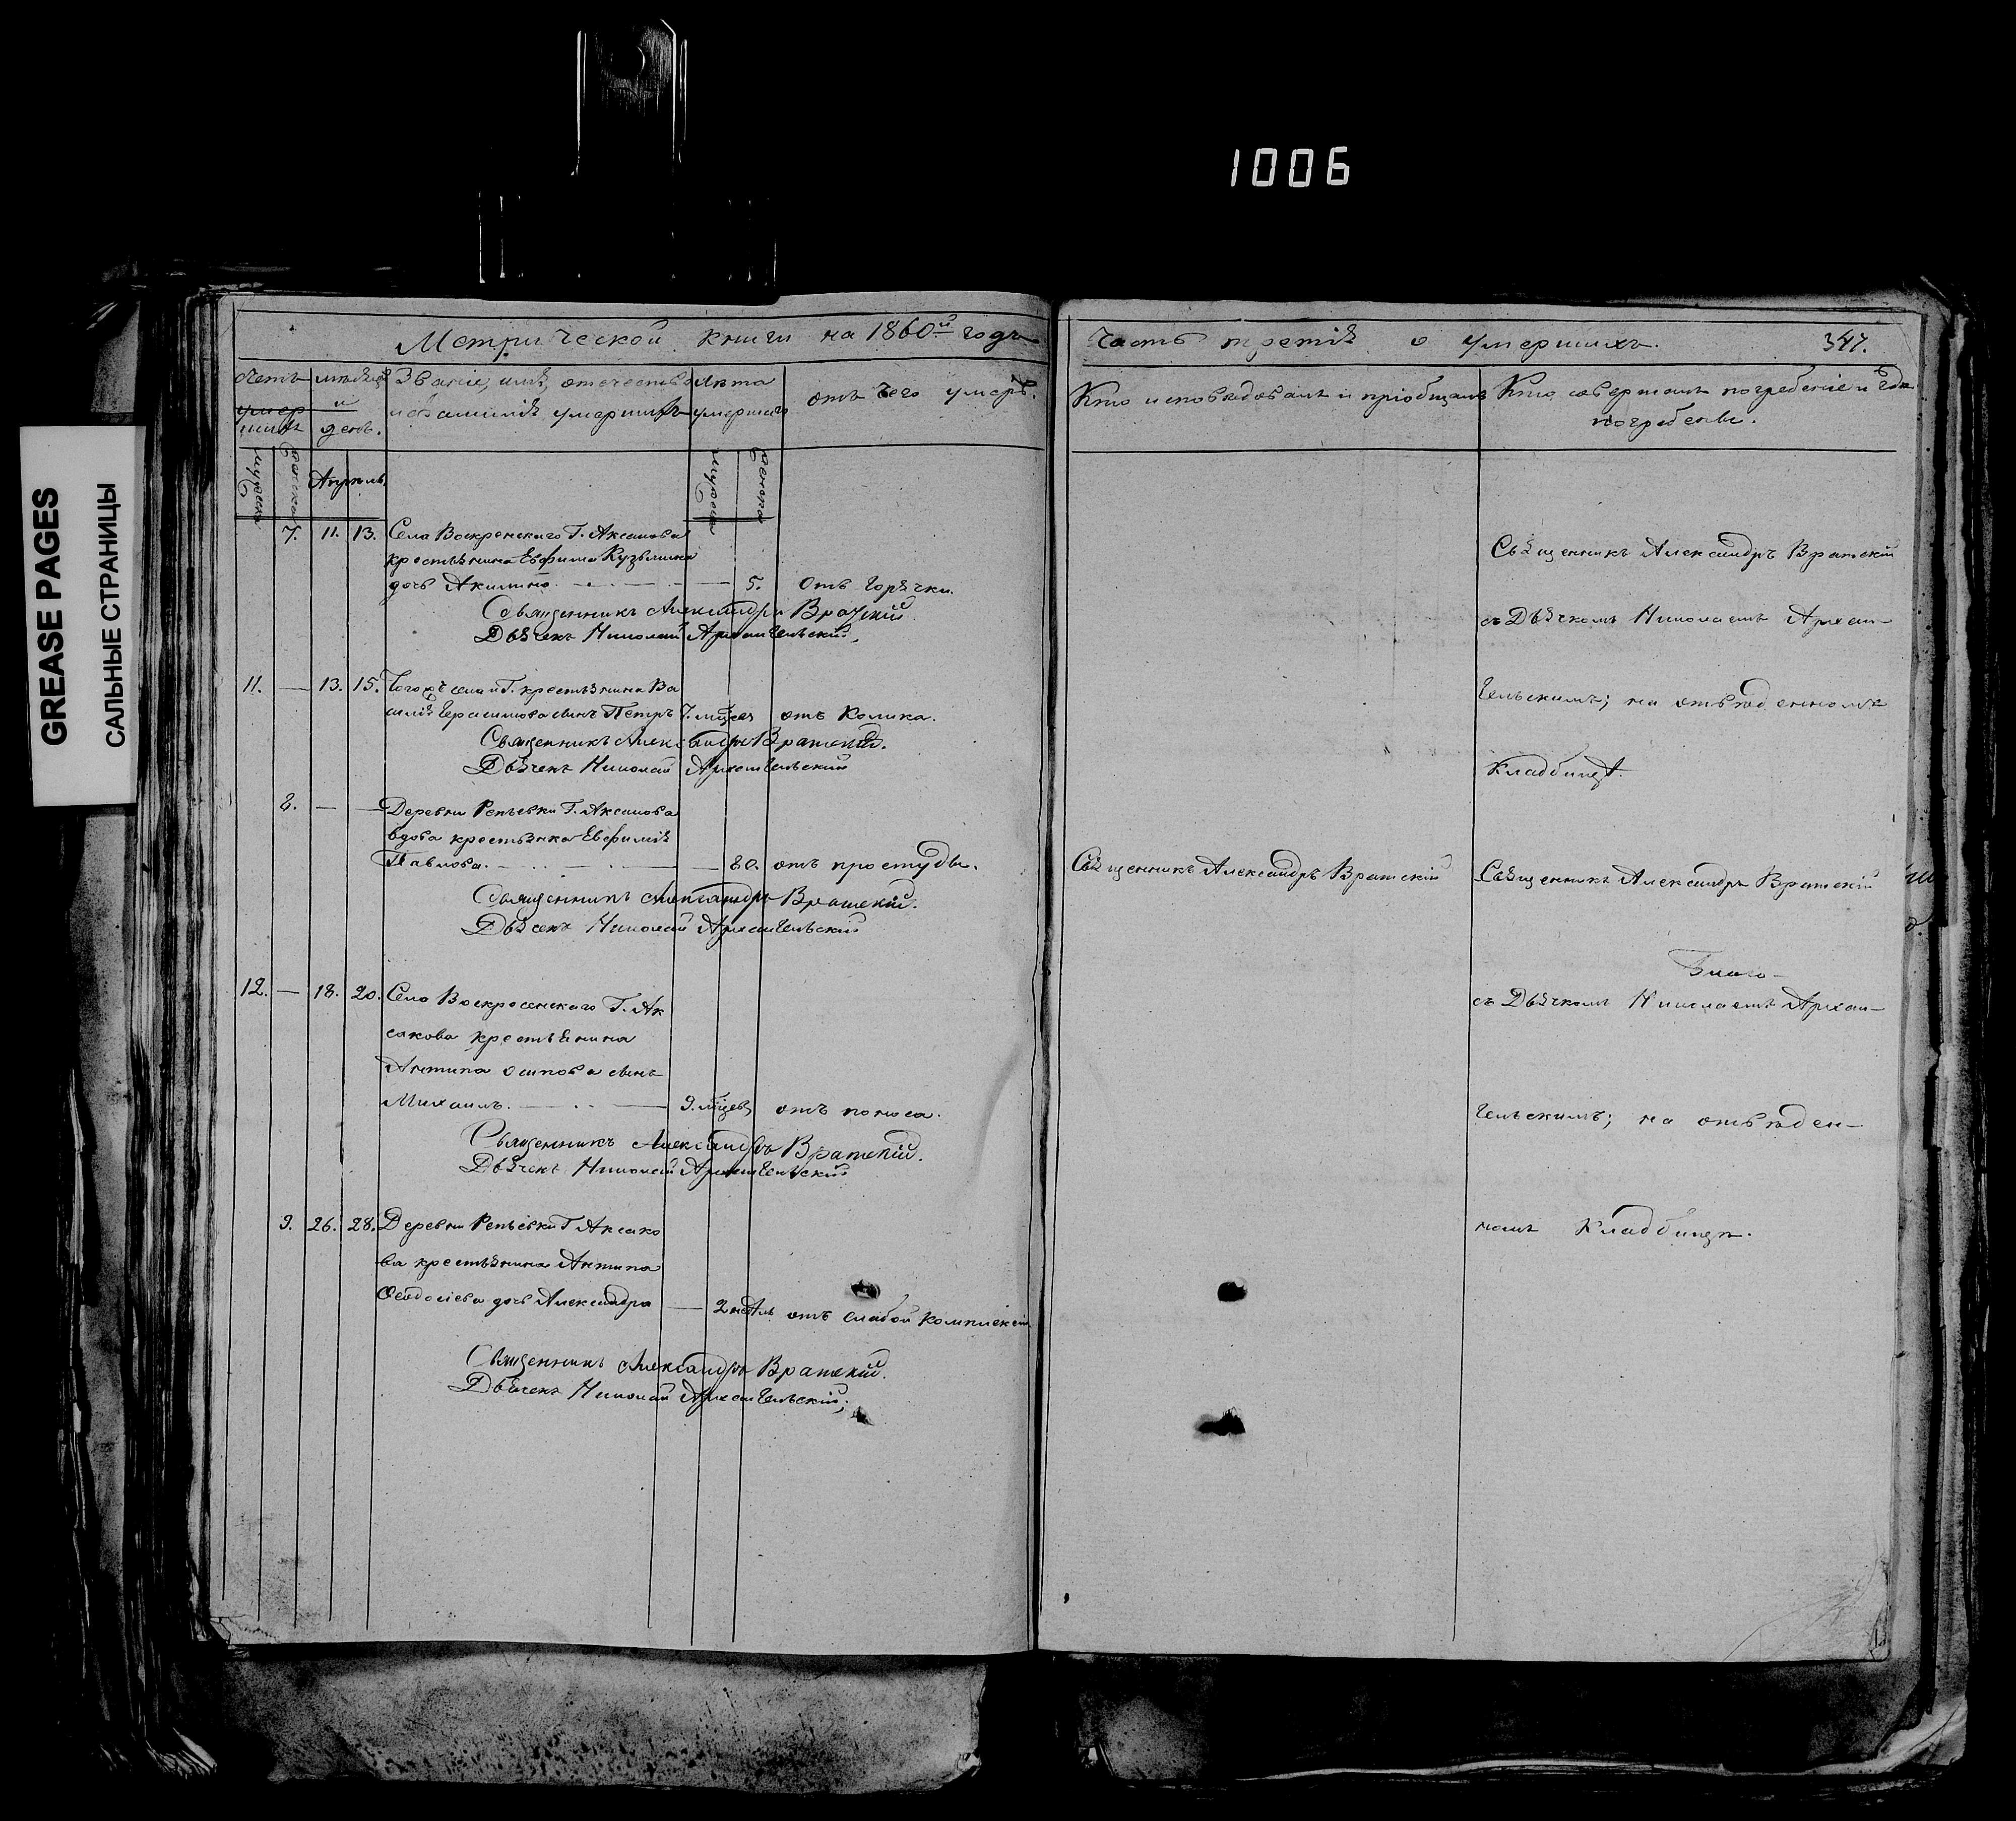 1006
GREASE PAGES
САЛЬНЫЕ СТРАНИЦЫ
Метрической книги на 1860й годъ
Счетъ умершихъ
мѣсяцъ и день.
Званіе, имя, отечество и фамилія умершихъ
Лѣта умершаго
отъ чего умеръ.
мужеска
женска
Апрѣль.
мужеска
женска
7. 11. 13. Села Воскресенскаго Г. Аксакова
крестьянина Евфима Кузьмина
дочь Акилина. 5. Отъ горячки.
Священникъ Александръ Вратскій
Дьячекъ Николай Архангельскій.
11. — 13. 15. Тогожъ села и Г. крестьянина Ва
силія Герасимова сынъ Петръ 7. мѣсяц отъ колика.
Священникъ Александръ Вратскій.
Дьячекъ Николай Архангельскій
8. — — Деревни Репьевки Г. Аксакова
вдова крестьянка Евфимія
Павлова. — 80. отъ простуды.
Священникъ Александръ Вратскій.
Дьячекъ Николай Архангельскій
12. — 18. 20. Села Воскресенскаго Г. Ак
сакова крестьянина
Антипа Осипова сынъ
Михаилъ. — 9. мѣсяцев отъ поноса.
Священникъ Александръ Вратскій.
Дьячекъ Николай Архангельскій
9. 26. 28. Деревни Репьевки Г. Аксако
ва крестьянина Антипа
дочь Александра — 2 недѣль отъ слабой комплекціи
Священникъ Александръ Вратскій.
Дьячекъ Николай Архангельскій;
Часть третія о умершихъ. 347.
Кто исповѣдовалъ и пріобщалъ
Кто совершалъ погребеніе и гдѣ
погребены.
Священникъ Александръ Вратскій
съ Дьячкомъ Николаемъ Архан-
гельскимъ; на отведенномъ
кладбищѣ.
Священникъ Александръ Вратскій
Священникъ Александръ Вратскій
съ Дьячкомъ Николаемъ Архан-
гельскимъ; на отведен-
номъ Кладбищѣ.